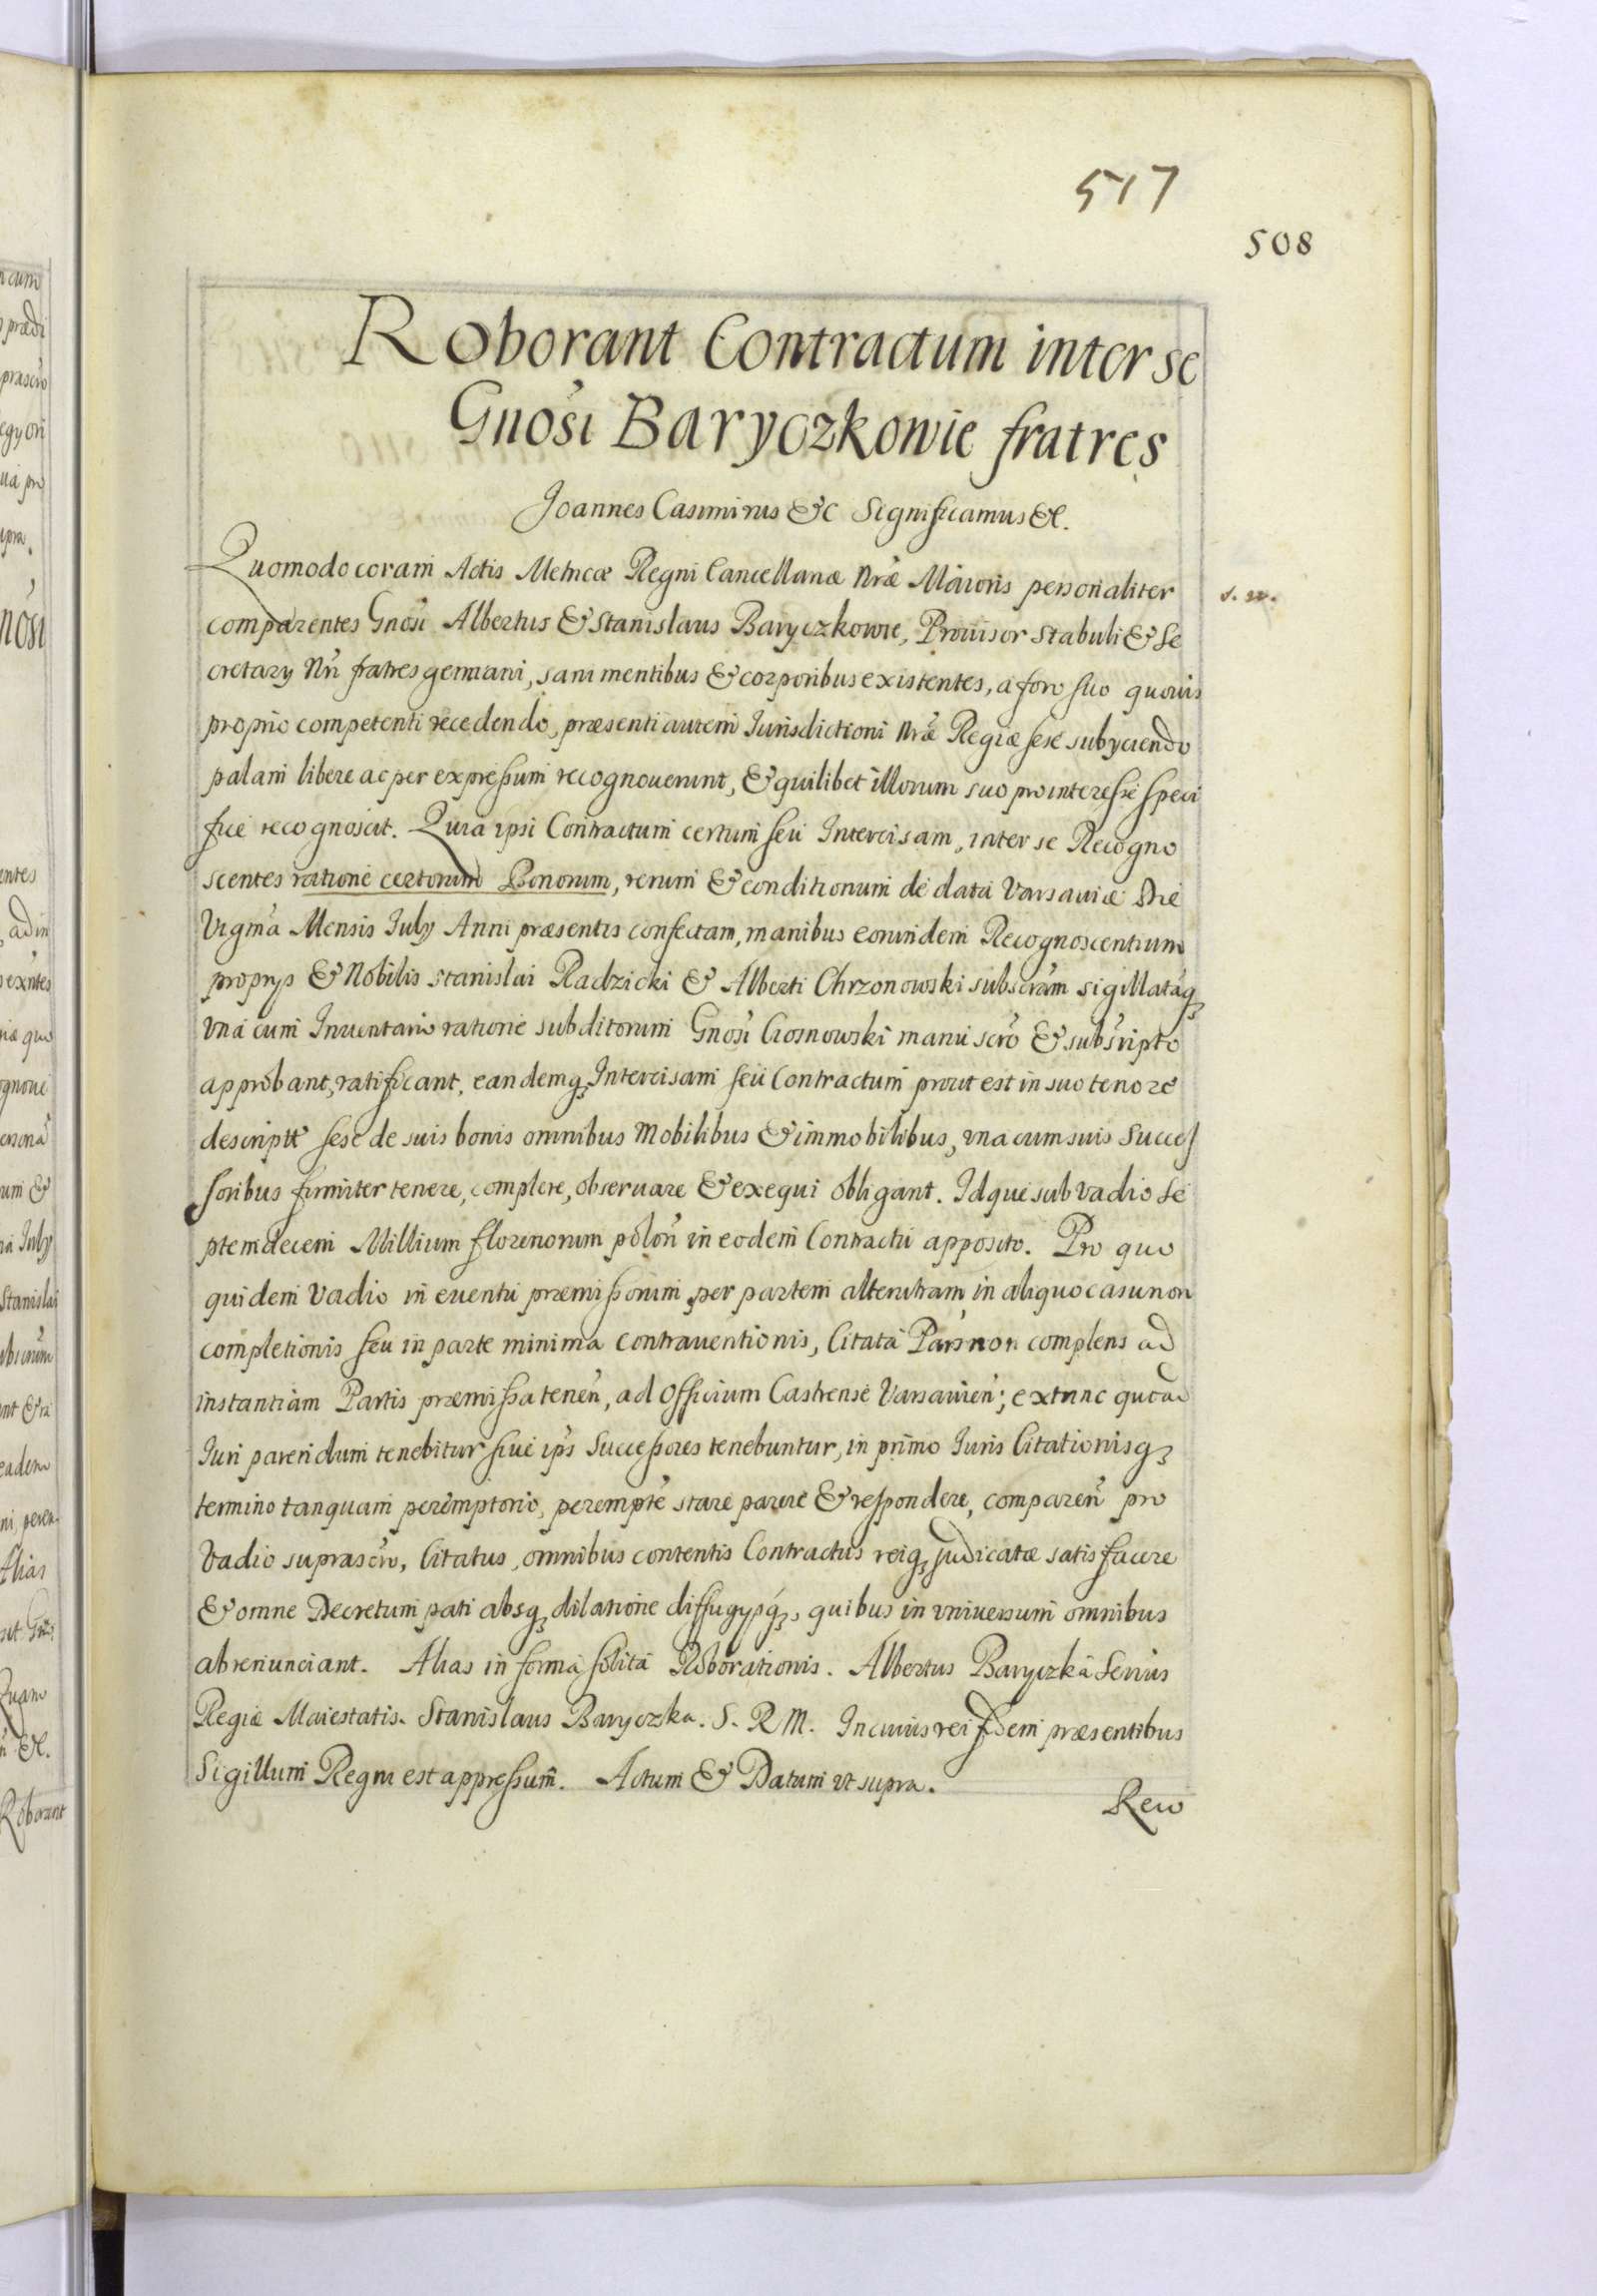 517
508
Roborant Contractum inter se
Gnosi Baryczkowie fratres
Joannes Casimirus &c Significamus &c.
Quomodo coram Actis Metricæ Regni Cancellariæ Nræ Maioris personaliter
comparentes Gnosi Albertus & Stanislaus Baryczkowie, Prouisor Stabuli & Se
cretary Nri fratres germani, sani mentibus & corporibus existentes, a foro suo quouis
proprio competenti recedendo, præsenti autem Jurisdictioni Nræ Regiæ sese subyciendo
palam libere ac per expressum recognouerunt, & quilibet illorum suo prointeresse speci
fice recognoscit. Quia ipsi Contractum certum seu Intercisam, inter se Recogno
scentes ratione certorum Bonorum, rerum & conditionum de data Varsauiæ Die
Vigma Mensis July Anni præsentis confectam, manibus eorundem Recognoscentium
proprys & Nobilis Stanislai Radzicki & Alberti Chrzonowski subscram sigillatāq;
vna cum Inuentario ratione subditorum Gnosi Crosnowski manu scro & subsripto
approbant, ratificant, eandemq; Intercisam seu Contractum prout est in suo tenore
descript sese de suis bonis omnibus Mobilibus & immobilibus, vna cum suis Succes
soribus firmiter tenere, complere, obseruare & exequi obligant. Idque sub vadio Se
ptemdecem Millium florenorum polon in eodem Contractu apposito. Pro quo
quidem Vadio in euentu præmissorum per partem alterutram in aliquo casu non
completionis seu in parte minima contrauentionis, Citata Pars non complens ad
instantiam Partis præmissa tenen, ad Officium Castrense Varsauien; extunc quoad
Juri parendum tenebitur siue ips Successores tenebuntur, in primo Juris Citationisq;
termino tanquam peremptorio, perempte stare parere & respondere, comparen pro
Vadio suprascro, Citatus, omnibus contentis Contractus reiq; judicatæ satisfacere
& omne Decretum pati absq; dilatione diffugysq;, quibus in vniuersum omnibus
abrenunciant. Alias in forma solita Roborationis. Albertus Baryczka Seruus
Regiæ Maiestatis. Stanislaus Baryczka. S. R M. In cuius rei fidem præsentibus
Sigillum Regni est appressum. Actum & Datum vt supra.